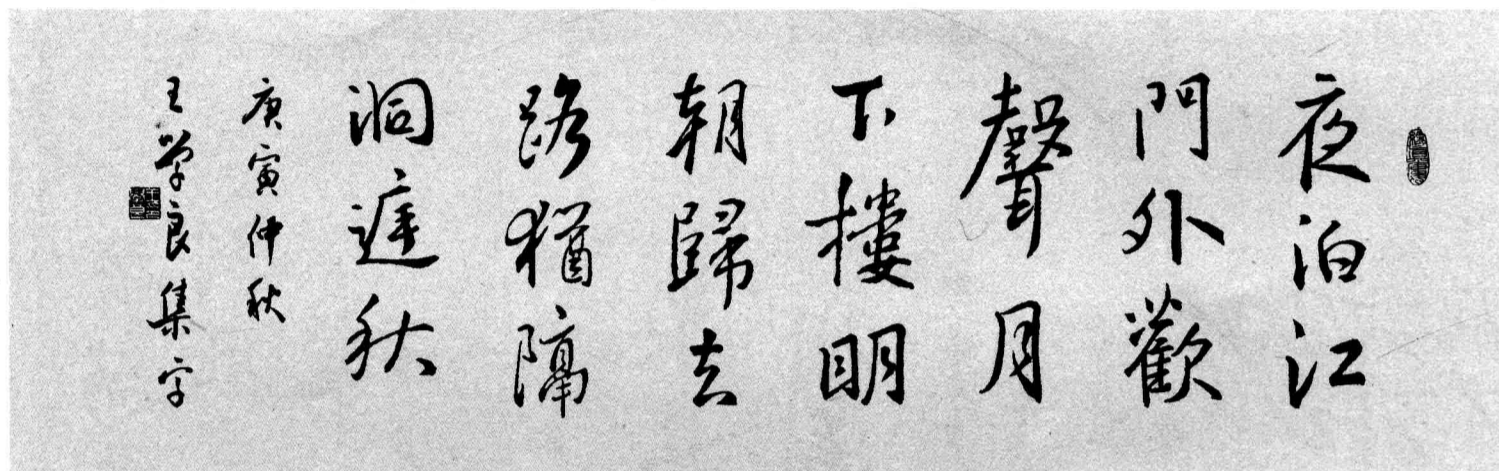 夜泊江
門外歡
聲月
下樓明
朝歸去
路猶隔
洞庭秋
庚寅仲秋
王学良集字